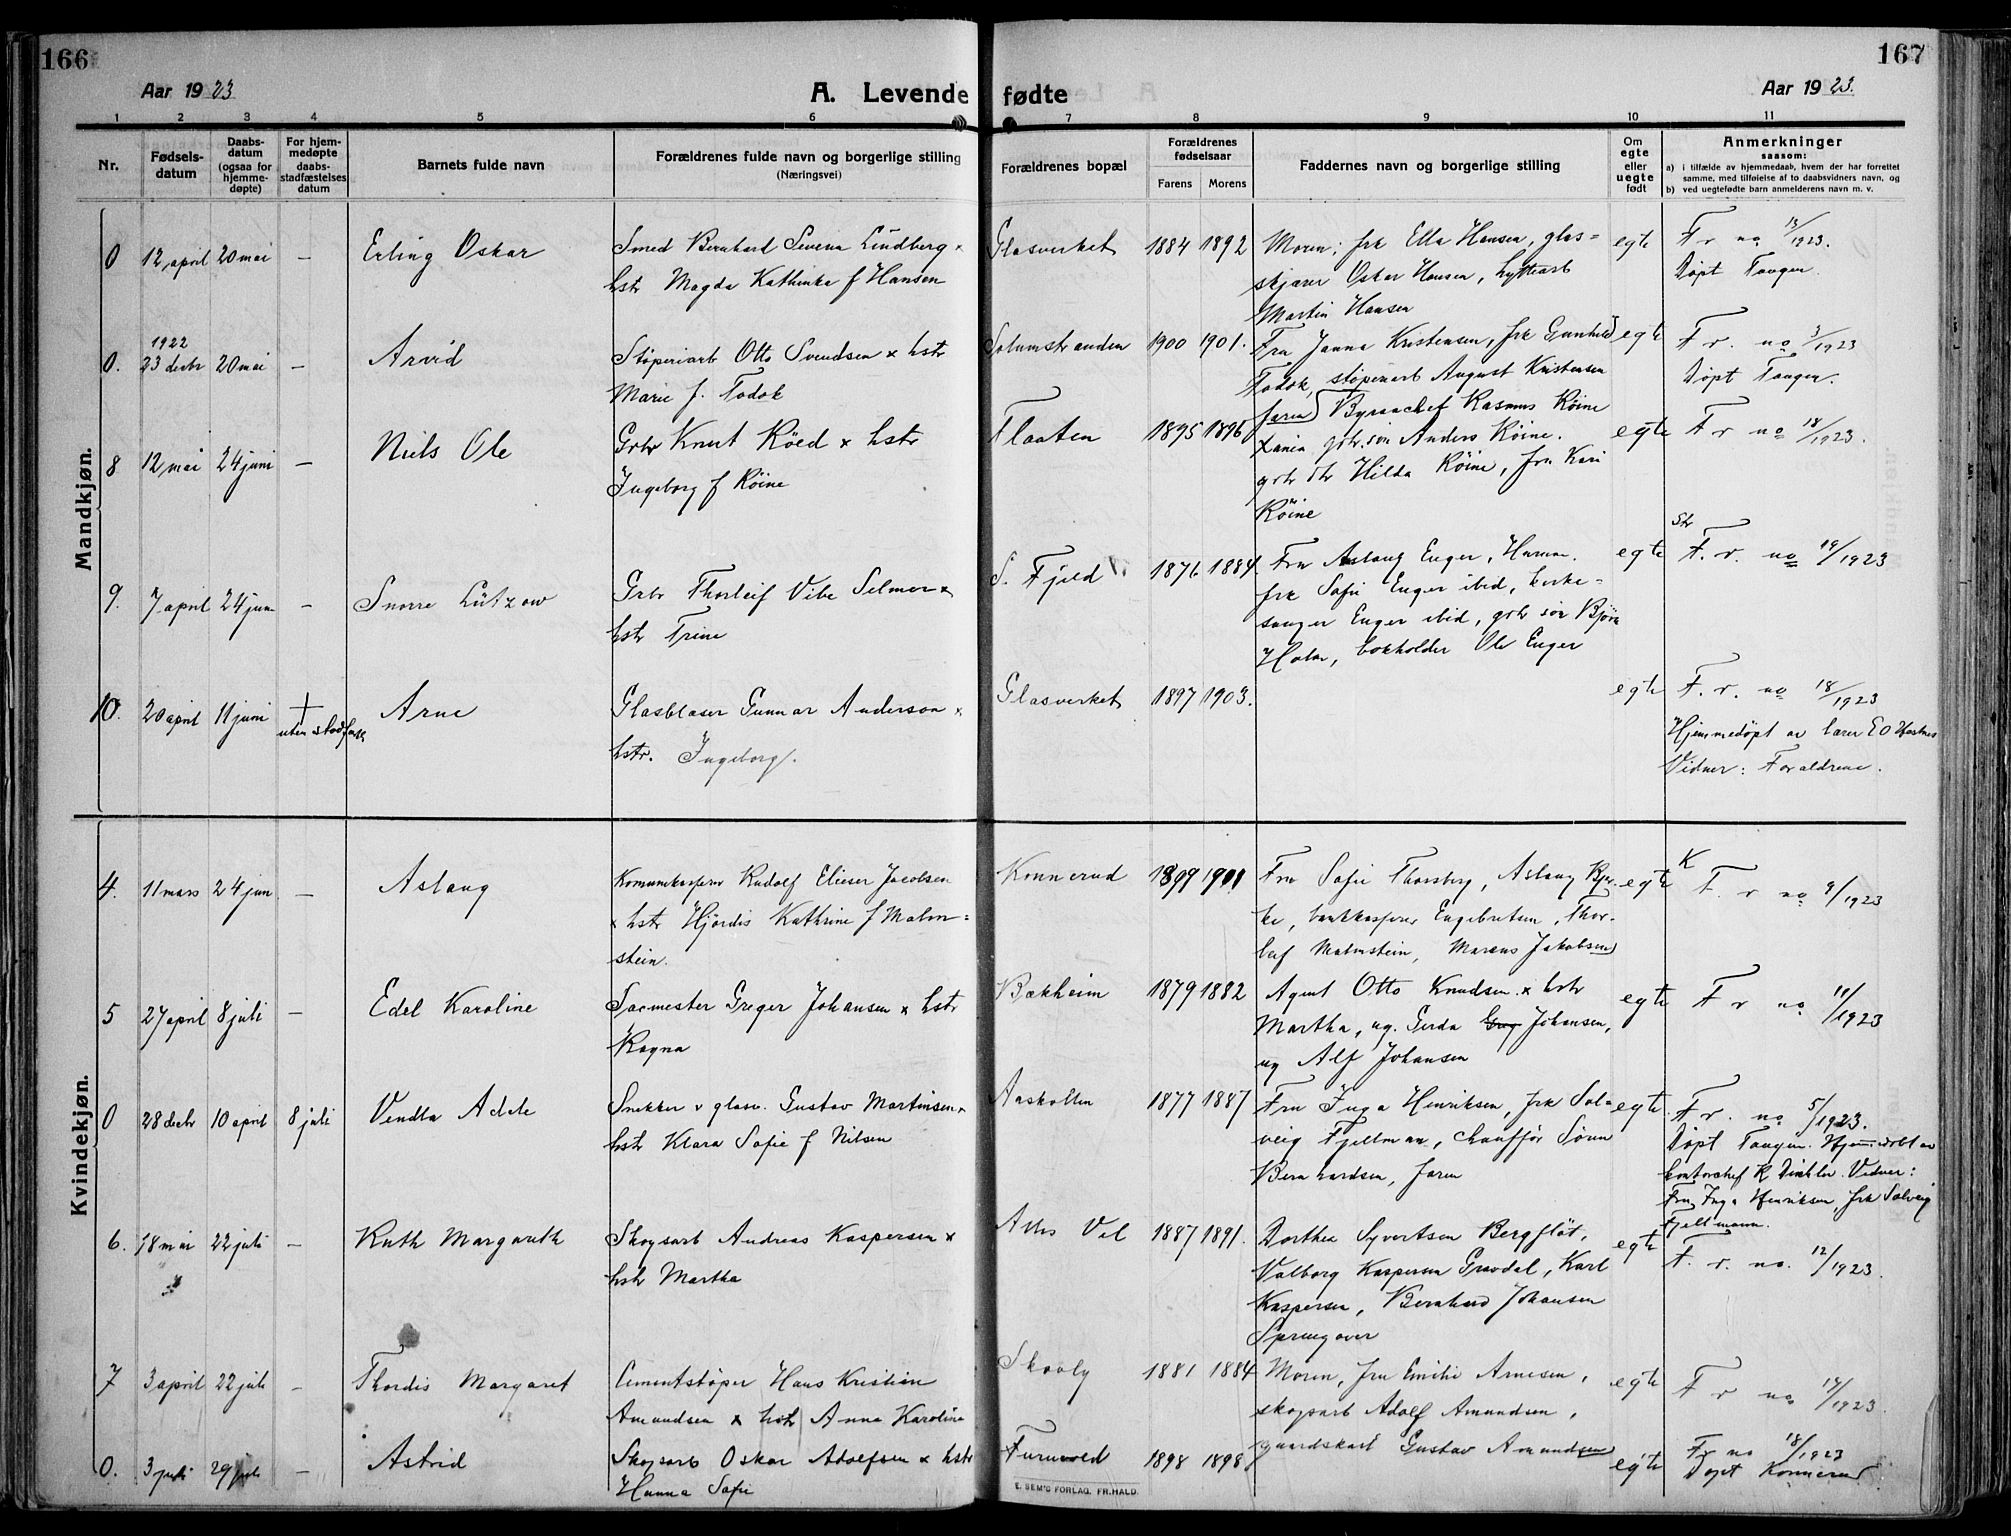 166
167
Aar 1923
A. Levende fødte
Aar 1923.
1 2 3 4 5 6 7 8 9 10 11
Nr.
Fødsels-
datum
Daabs-
datum
(ogsaa for
hjemme-
døpte)
For hjem-
medøpte
daabs-
stadfæstelses
datum
Barnets fulde navn
Forældrenes fulde navn og borgerlige stilling
(Næringsvei)
Forældrenes bopæl
Forældrenes
fødselsaar
Farens Morens
Faddernes navn og borgerlige stilling
Om
egte
eller
uegte
født
Anmerkninger
saasom:
a) i tilfælde av hjemmedaab, hvem der har forrettet
samme, med tilføielse af to daabsvidners navn, og
b) ved uegtefødte barn anmelderens navn m. v.
Mandkjøn.
0 12 april 20 mai – Erling Oskar
Smed Bernhard Severin Lindberg x
hstr Magda Kathinka f Hansen
Glasverket 1884 1892
Moren; frk Ella Hansen, glas=
skjærer Oskar Hansen, hyttearb
Martin Hansen
egte
F r no 13/1923.
Døpt Tangen.
1922
0. 23 decbr 20 mai – Arvid
Støperiarb Otto Svendsen x hstr
Marie f. Fodok
Solumstranden 1900 1901.
Fru Janna Kristensen, frk Gunhild
Fodok, støperiarb August Kristensen
faren
egte
F. r. no 3/1923
Døpt Tangen.
8 12 mai 24 juni – Niels Ole
Grbr Knut Röed x hstr
Ingeborg f Röine
Flaaten 1895 1896
Byraachef Rasmus Röine
Xania grbr søn Anders Röine.
grbr dtr Hilda Röine, fru Kari
Röine
egte
F r no 18/1923.
9. 7 april 24 jun – Snorre Lützow
Grbr Thorleif Vibe Selmer x
hstr Trine
S. Fjeld 1876 1884.
Fru Aslaug Enger,
frk Sofie Enger ibid, kirke=
sanger Enger ibid, grbr søn Bjørn
Holm, bokholder Ole Enger
egte
Str
F. r. no 19/1923
10. 20 april 11 juni +
uten stadfæst
Arne
Glasblaser Gunnar Anderson x
hstr. Ingeborg.
Glasverket 1897 1903.
egte
F. r. no 18/1923
Hjemmedøpt av lærer E O Hestnes
Vidner: Forældrene.
Kvindekjøn.
4. 11 mars 24 jun – Aslaug
Komunekasserer Rudolf Elieser Jacobsen
x hstr Hjördis Kathrine f Malm=
stein.
Konnerud 1899 1901
Fru Sofie Thorsberg, Aslaug Bjer-
ke, bankkasserer Engebretsen, Thor-
leif Malmstein, Marcus Jakobsen
egte
K
F. r no 9/1923
5 27 april 8 juli – Edel Karoline
Sagmester Greger Johansen x hstr
Ragna
Bækheim 1879 1882
Agent Otto Knudsen x hstr
Martha, ug. Gerda Greg Johansen,
ug Alf Johansen
egte
F r no 11/1923
0 28 decbr 10 april 8 juli Vendla Adele
Snekker v glasv. Gustav Martinsen x
hstr Klara Sofie f Nilsen
Aaskollen 1877 1887
Fru Inga Henriksen, frk Sol=
veig Fjellman, chauffør Sönn
Bernhardsen, faren
egte
F. r. no 5/1923.
Døpt Tangen. Hjemmedøbt av
kontorchef R Dinkler. Vidner:
Fru Inga Henriksen, frk Solveig
Fjellmann.
6. 18 mai 22 juli – Ruth Margareth
Skogsarb Andreas Kaspersen x
hstr Martha
Alhs Vel 1887 1891.
Dorthea Syvertsen Bergfløt,
Valborg Kaspersen Gravdal, Karl
Kaspersen, Bernhard Johansen
Spring over
egte
F. r. no. 12/1923.
7 3 april 22 juli – Thordis Margaret
Cementstøper Hans Kristian
Amundsen x hstr Anna Karoline
Skovly 1881 1884
Moren, fru Emilie Arnesen,
skogsarb Adolf Amundsen,
gaardskarl Gustav Amundsen
egte
F r no 14/1923
0. 3 juli 29 juli – Astrid
Skogsarb Oskar Adolfsen x hstr
Hanna Sofie
Furuvold 1898 1898
egte
Fr no 18/1923
Døpt Konnerud
E. SEM'S FORLAG. FR.HALD.